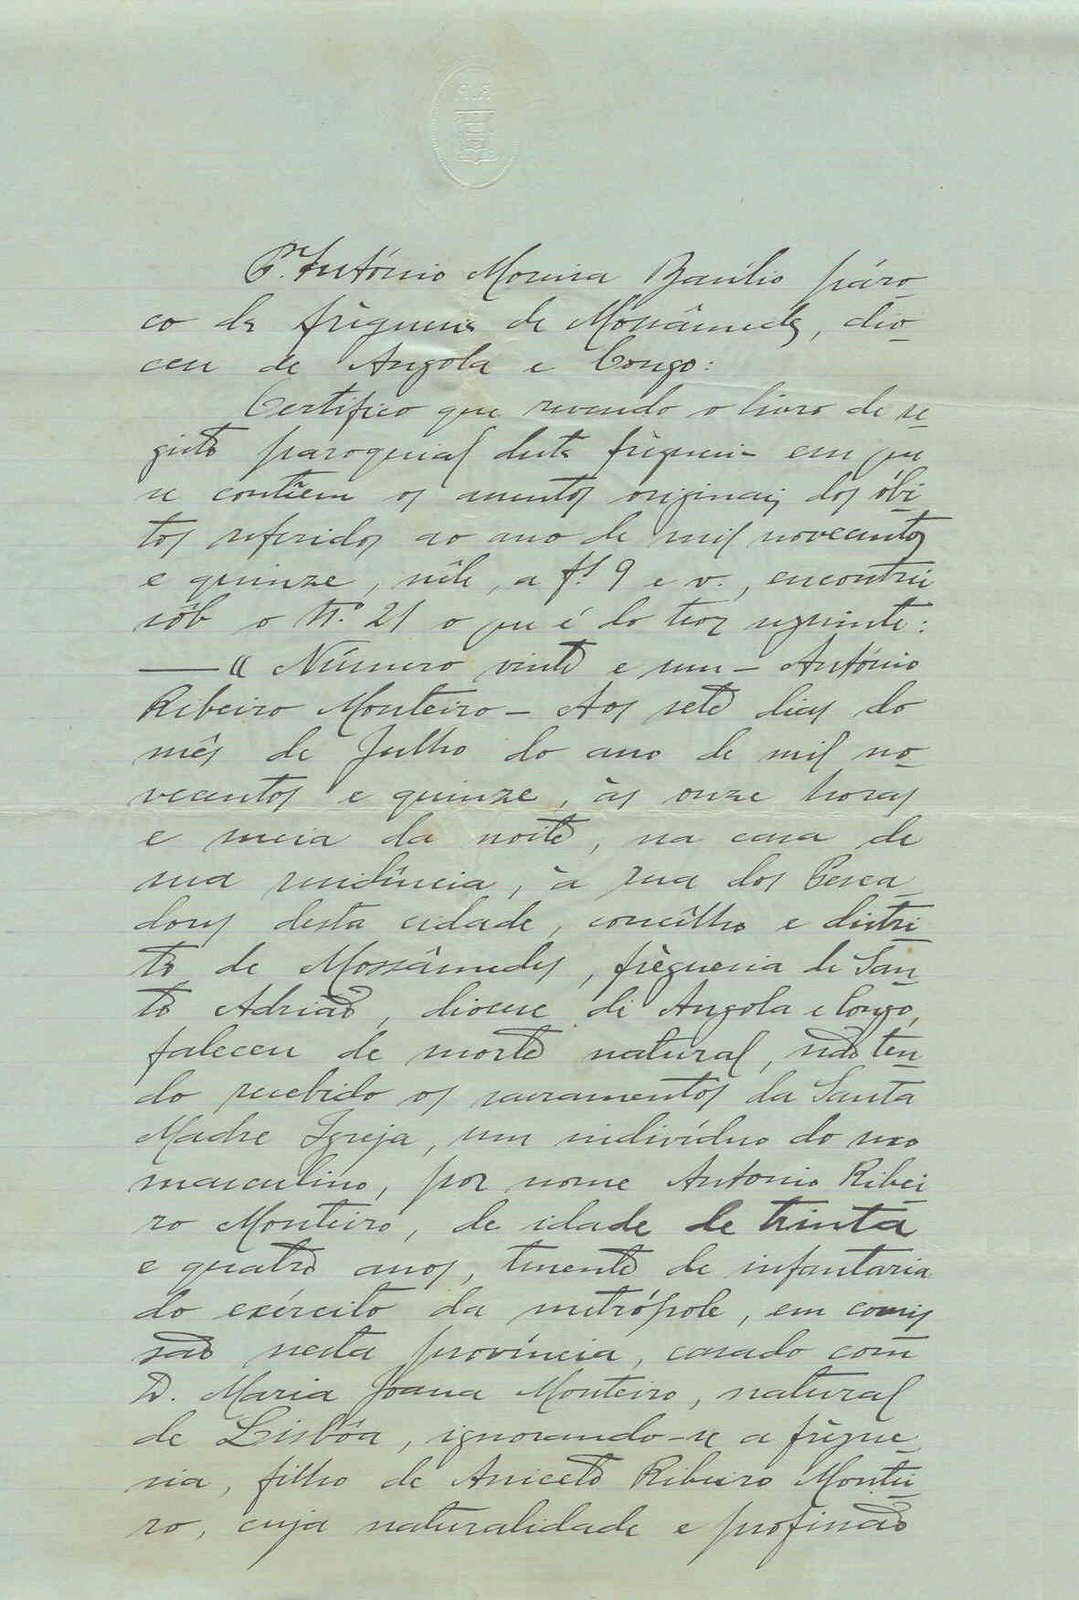 P.e António Moreira Basilio páro-
co da frèguesia de Mossâmedes, dio-
cese de Angola e Congo:
Certifico que revendo o livro de re-
gisto paroquial desta frèguesia em que
se contêem os assentos originais dos óbi-
tos referidos ao ano de mil novecentos
e quinze, nêle, a fl. 9 e v., encontrei
sôb o N.º 21 o que é do teor seguinte:
—— "Número vinte e um — António
Ribeiro Monteiro — Aos sete dias do
mês de Julho do ano de mil no-
vecentos e quinze, às onze horas
e meia da noite, na casa de
sua residência, à rua dos Pesca
dores desta cidade, concêlho e distri-
to de Mossâmedes, frèguesia de San-
to Adrião, diocese de Angola e Congo,
faleceu de morte natural, não ten-
do recebido os sacramentos da Santa
Madre Igreja, um indivíduo do sexo
masculino, por nome Antonio Ribei-
ro Monteiro, de idade de trinta
e quatro anos, tenente de infantaria
do exército da metrópole, em comis
são nesta província, casado com
D. Maria Joana Monteiro, natural
de Lisbôa, ignorando-se a frègue-
sia, filho de Aniceto Ribeiro Montei-
ro, cuja naturalidade e profissão